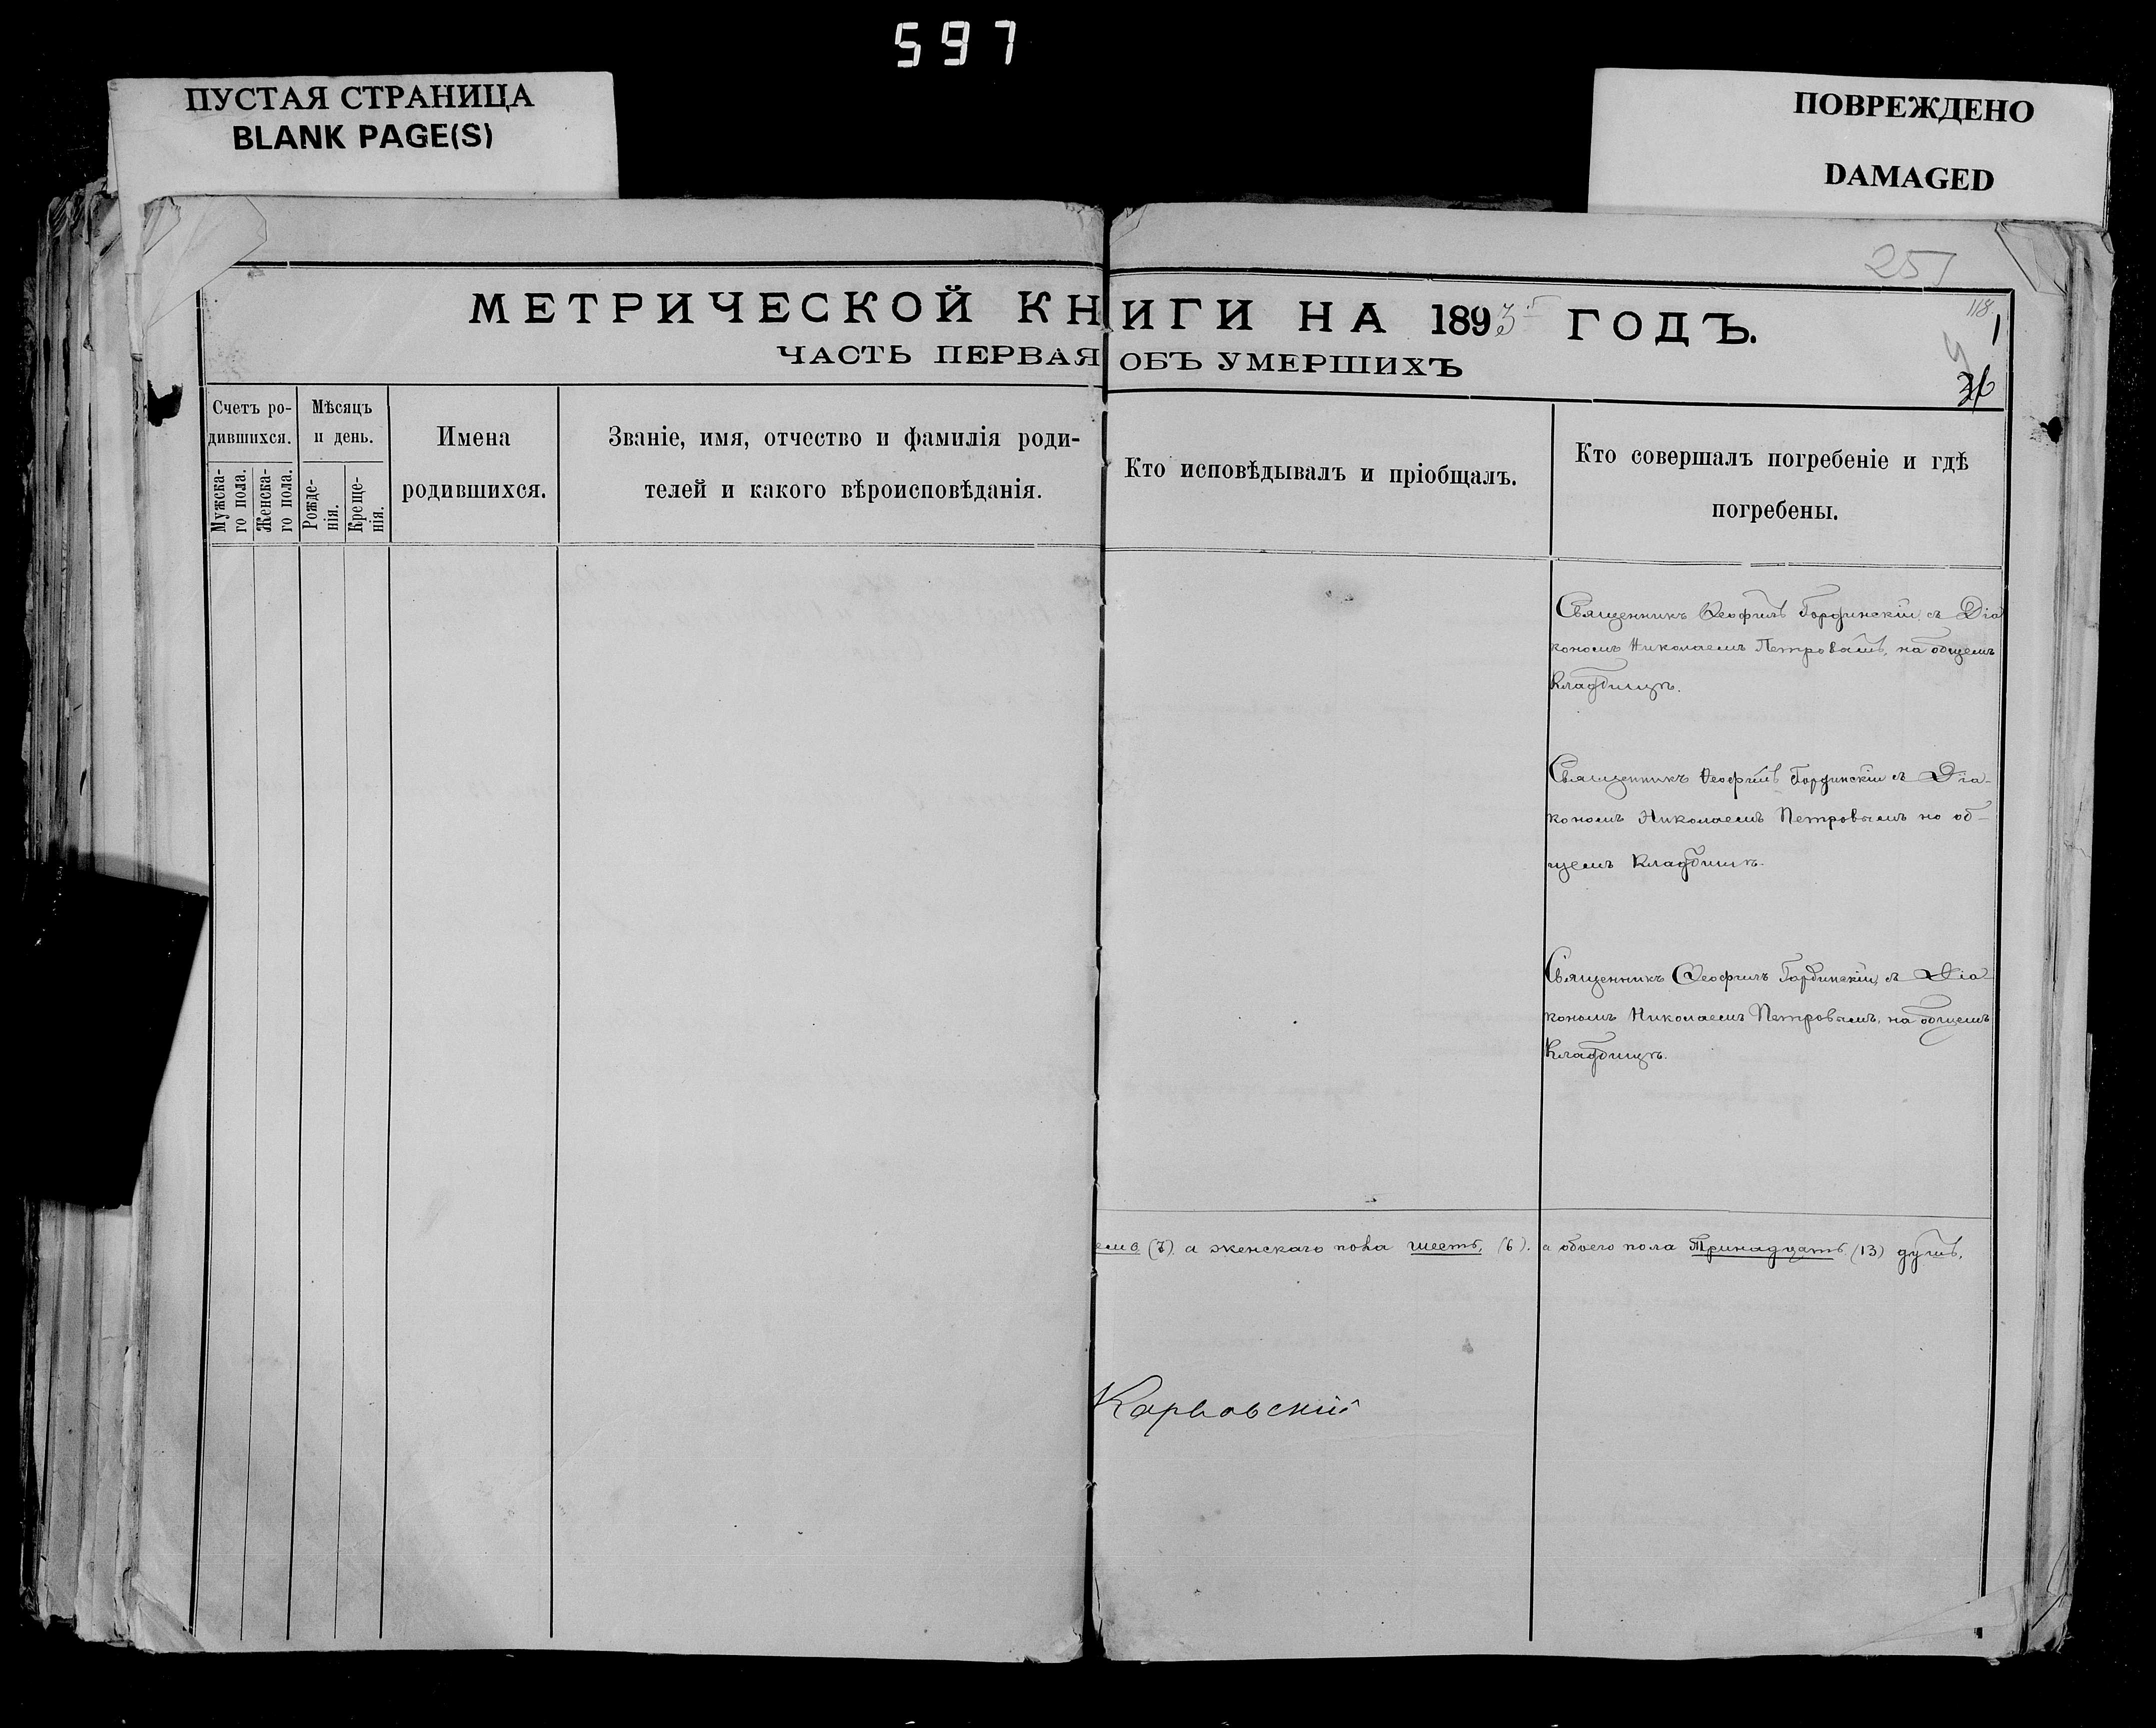 597
ПУСТАЯ СТРАНИЦА
BLANK PAGE(S)
ПОВРЕЖДЕНО
DAMAGED
251
118
МЕТРИЧЕСКОЙ КНИГИ НА 1893 ГОДЪ.
ЧАСТЬ ПЕРВАЯ ОБЪ УМЕРШИХЪ
Счетъ ро-
дившихся.
Мужска-
го пола.
Женска-
го пола.
Мѣсяцъ
и день.
Рожде-
нія.
Креще-
нія.
Имена
родившихся.
Званіе, имя, отчество и фамилія роди-
телей и какого вѣроисповѣданія.
Кто исповѣдывалъ и пріобщалъ.
Кто совершалъ погребеніе и гдѣ
погребены.
Священникъ Ѳеофилъ Гординскій съ Діа
кономъ Николаемъ Петровымъ, на общемъ
Кладбищѣ.
Священникъ Ѳеофилъ Гординскій съ Діа-
кономъ Николаемъ Петровымъ на об-
щемъ Кладбищѣ.
Священникъ Ѳеофилъ Гординскій, съ Діа
кономъ Николаемъ Петровымъ, на общемъ
Кладбищѣ.
емь (7) а женскаго пола шесть, (6). а обоего пола Тринадцать (13) душъ,